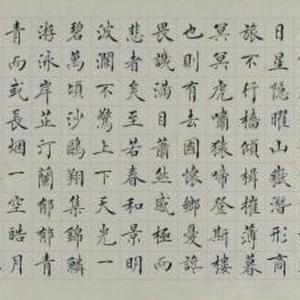 日星隱曜山嶽潛形商
旅不行檣傾楫摧薄暮
冥冥虎嘯猿啼登斯樓
也則有去國懷鄉憂讒
畏譏滿目蕭然感極而
悲者矣至若春和景明
波瀾不驚上下天光一
碧萬頃沙鷗翔集錦鱗
游泳岸芷汀蘭郁郁青
青而或長烟一空皓月